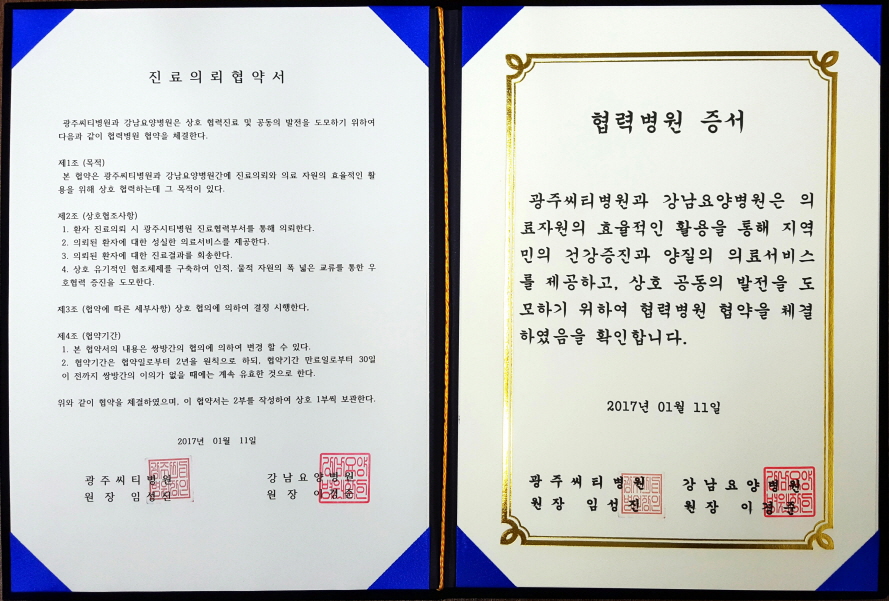 진료의뢰협약서
광주씨티병원과 강남요양병원은 상호 협력진료 및 공동의 발전을 도모하기 위하여
다음과 같이 협력병원 협약을 체결한다.
제1조 (목적)
본 협약은 광주씨티병원과 강남요양병원간에 진료의뢰와 의료 자원의 효율적인 활
용을 위해 상호 협력하는데 그 목적이 있다.
제2조 (상호협조사항)
1. 환자 진료의뢰 시 광주시티병원 진료협력부서를 통해 의뢰한다.
2. 의뢰된 환자에 대한 성실한 의료서비스를 제공한다.
3. 의뢰된 환자에 대한 진료결과를 회송한다.
4. 상호 유기적인 협조체제를 구축하여 인적, 물적 자원의 폭 넓은 교류를 통한 우
호협력 증진을 도모한다.
제3조 (협약에 따른 세부사항) 상호 협의에 의하여 결정 시행한다.
제4조 (협약기간)
1. 본 협약서의 내용은 쌍방간의 협의에 의하여 변경 할 수 있다.
2. 협약기간은 협약일로부터 2년을 원칙으로 하되, 협약기간 만료일로부터 30일
이 전까지 쌍방간의 이의가 없을 때에는 계속 유효한 것으로 한다.
위와 같이 협약을 체결하였으며, 이 협약서는 2부를 작성하여 상호 1부씩 보관한다.
2017년 01월 11일
광주씨티병원 강남요양병원
원장 임성진 원장 이경준
협력병원 증서
광주씨티병원과 강남요양병원은 의
료자원의 효율적인 활용을 통해 지역
민의 건강증진과 양질의 의료서비스
를 제공하고, 상호 공동의 발전을 도
모하기 위하여 협력병원 협약을 체결
하였음을 확인합니다.
2017년 01월 11일
광주씨티병원 강남요양병원
원장 임성진 원장 이경준